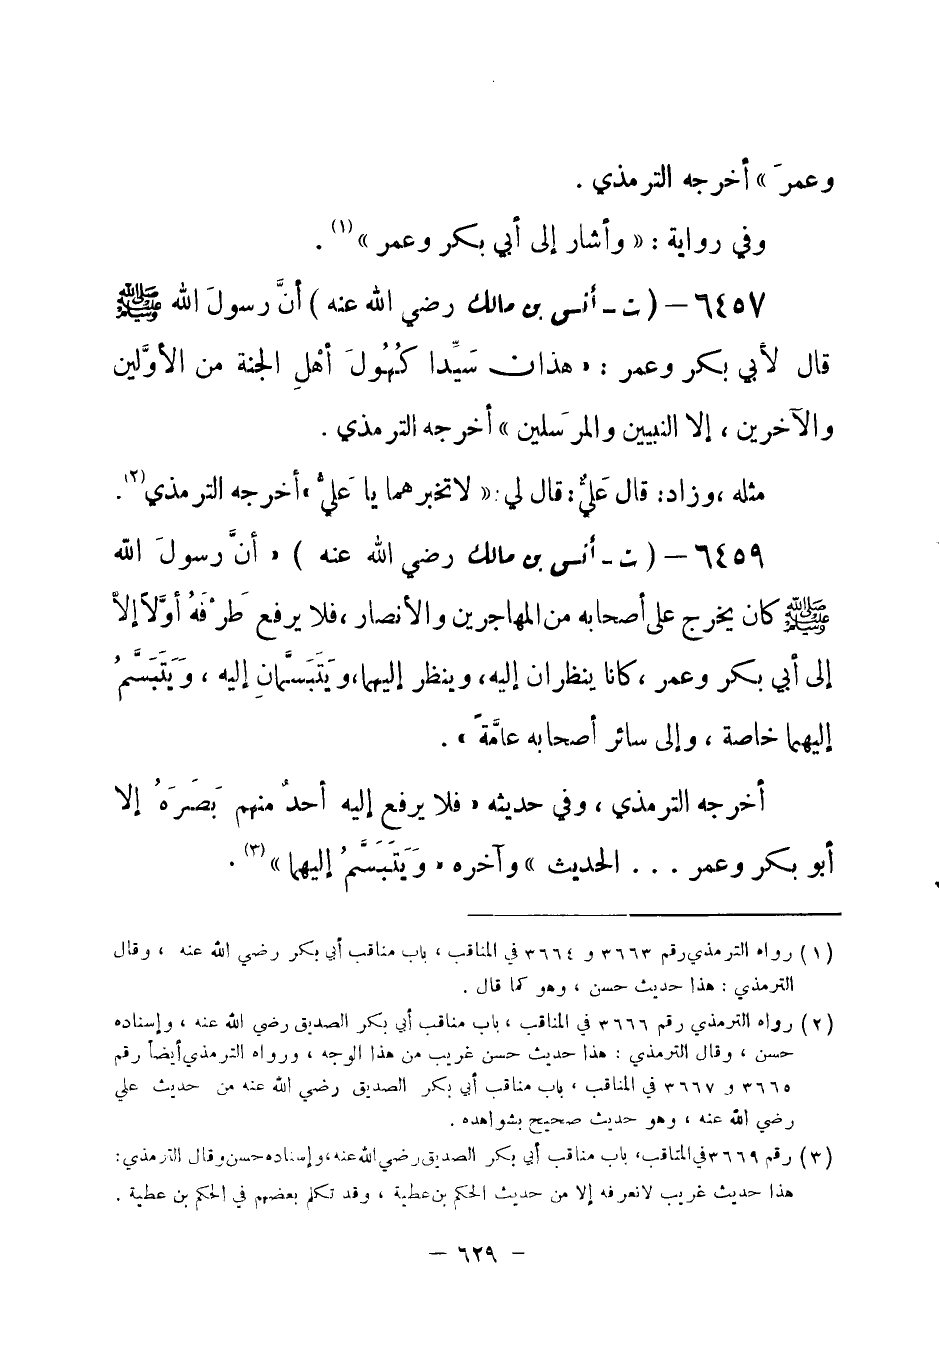 وعمرَ » أخرجه الترمذي .
وفي رواية : « وأشار إلى أبي بكر وعمر » (١) .
٦٤٥٧ – ( ت - أنس بن مالك رضي الله عنه ) أنَّ رسولَ الله ﷺ
قال لأبي بكر وعمر : « هذان سَيِّدا كُهُولَ أهْلِ الجنة من الأوَّلين
والآخرين ، إلا النبيين والمرسَلين » أخرجه الترمذي .
مثله ، وزاد : قال عَليٌّ : قال لي : « لا تخبرهما يا عَليُّ » أخرجه الترمذي (٢) .
٦٤٥٩ – ( ت - أنس بن مالك رضي الله عنه ) « أنَّ رسولَ الله
ﷺ كان يخرج على أصحابه من المهاجرين والأنصار ، فلا يرفع طَرْفَهُ أوَّلاً إلاَّ
إلى أبي بكر وعمر ، كانا ينظران إليه ، وينظر إليهما ، ويَتَبَسَّمانِ إليه ، وَيَتَبَسَّمُ
إليهما خاصة ، وإلى سائر أصحابه عامَّةً » .
أخرجه الترمذي ، وفي حديثه « فلا يرفع إليه أحدٌ منهم بَصَرَهُ إلا
أبو بكر وعمر . . . الحديث » وآخره « وَيَتَبَسَّمُ إليهما » (٣) .
(١) رواه الترمذي رقم ٣٦٦٣ و ٣٦٦٤ في المناقب ، باب مناقب أبي بكر رضي الله عنه ، وقال
الترمذي : هذا حديث حسن ، وهو كما قال .
(٢) رواه الترمذي رقم ٣٦٦٦ في المناقب ، باب مناقب أبي بكر الصديق رضي الله عنه ، وإسناده
حسن ، وقال الترمذي : هذا حديث حسن غريب من هذا الوجه ، ورواه الترمذي أيضاً رقم
٣٦٦٥ و ٣٦٦٧ في المناقب ، باب مناقب أبي بكر الصديق رضي الله عنه من حديث علي
رضي الله عنه ، وهو حديث صحيح بشواهده .
(٣) رقم ٣٦٦٩ في المناقب، باب مناقب أبي بكر الصديق رضي الله عنه ، وإسناده حسن وقال الترمذي :
هذا حديث غريب لا نعرفه إلا من حديث الحكم بن عطية ، وقد تكلم بعضهم في الحكم بن عطية .
– ٦٢٩ –